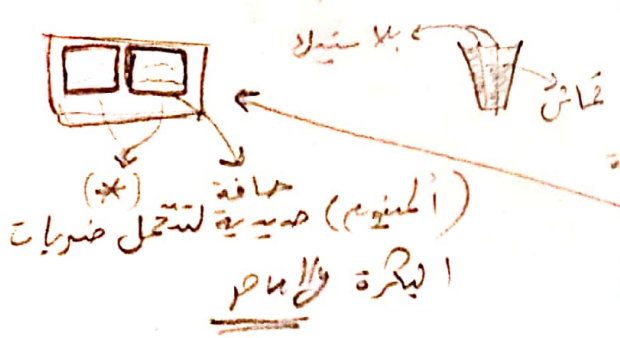 بلاستيك
قماش
(*)
حافة
(ألمنيوم) حديدية لتتحمل ضربات
البكرة